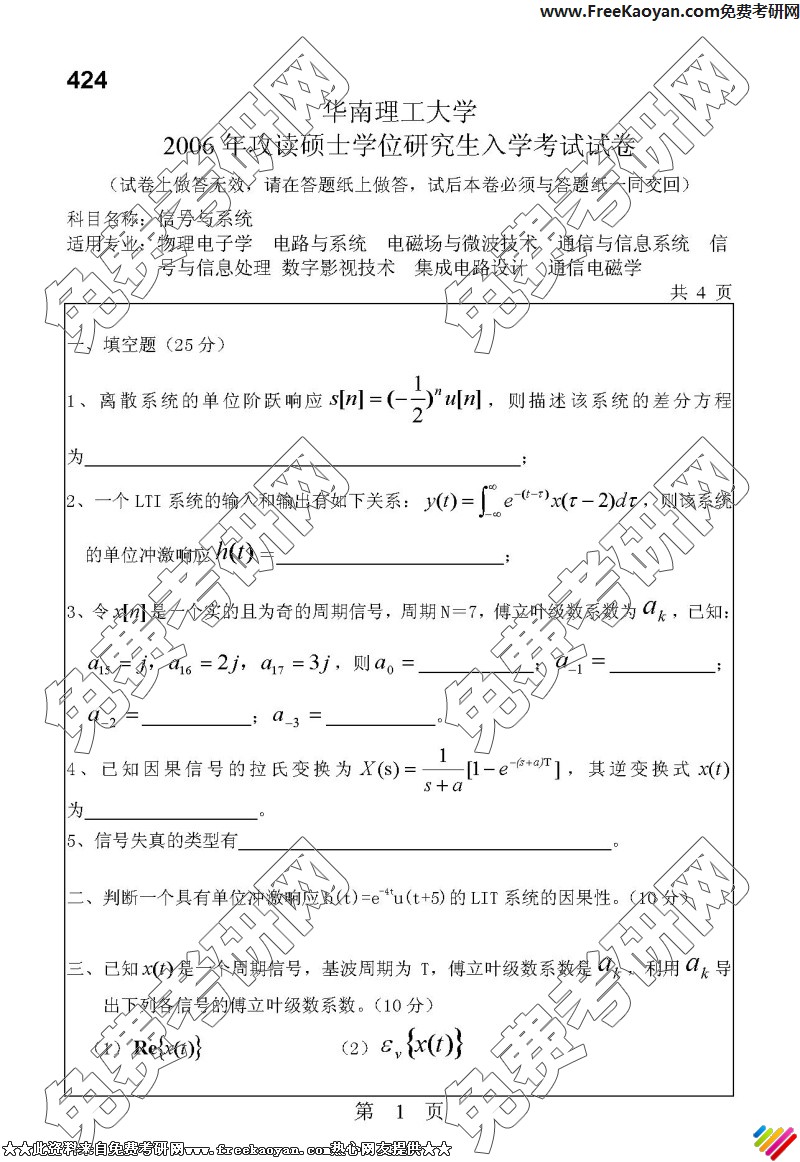 www.FreeKaoyan.com免费考研网
424
华南理工大学
2006 年攻读硕士学位研究生入学考试试卷
（试卷上做答无效，请在答题纸上做答，试后本卷必须与答题纸一同交回）
科目名称：信号与系统
适用专业：物理电子学 电路与系统 电磁场与微波技术 通信与信息系统 信
号与信息处理 数字影视技术 集成电路设计 通信电磁学
共 4 页
一、填空题（25 分）
1、离散系统的单位阶跃响应 s[n] = (-1/2)^n u[n]，则描述该系统的差分方程
为____________；
2、一个 LTI 系统的输入和输出有如下关系：y(t) = ∫_{-∞}^{∞} e^{-(t-τ)} x(τ-2)dτ，则该系统
的单位冲激响应 h(t) = ____________；
3、令 x[n] 是一个实的且为奇的周期信号，周期 N＝7，傅立叶级数系数为 a_k，已知：
a_15 = j，a_16 = 2j，a_17 = 3j，则 a_0 = ________；a_{-1} = ________；
a_{-2} = ________；a_{-3} = ________。
4、已知因果信号的拉氏变换为 X(s) = 1/(s+a) [1 - e^{-(s+a)T}]，其逆变换式 x(t)
为____________。
5、信号失真的类型有____________。
二、判断一个具有单位冲激响应 h(t)=e^{-4t}u(t+5)的 LIT 系统的因果性。（10 分）
三、已知 x(t) 是一个周期信号，基波周期为 T，傅立叶级数系数是 a_k，利用 a_k 导
出下列各信号的傅立叶级数系数。（10 分）
（1）Re{x(t)} （2）ε_v{x(t)}
第 1 页
★★此资料来自免费考研网www.freekaoyan.com热心网友提供★★
免费考研网
免费考研网
免费考研网
免费考研网
免费考研网
免费考研网